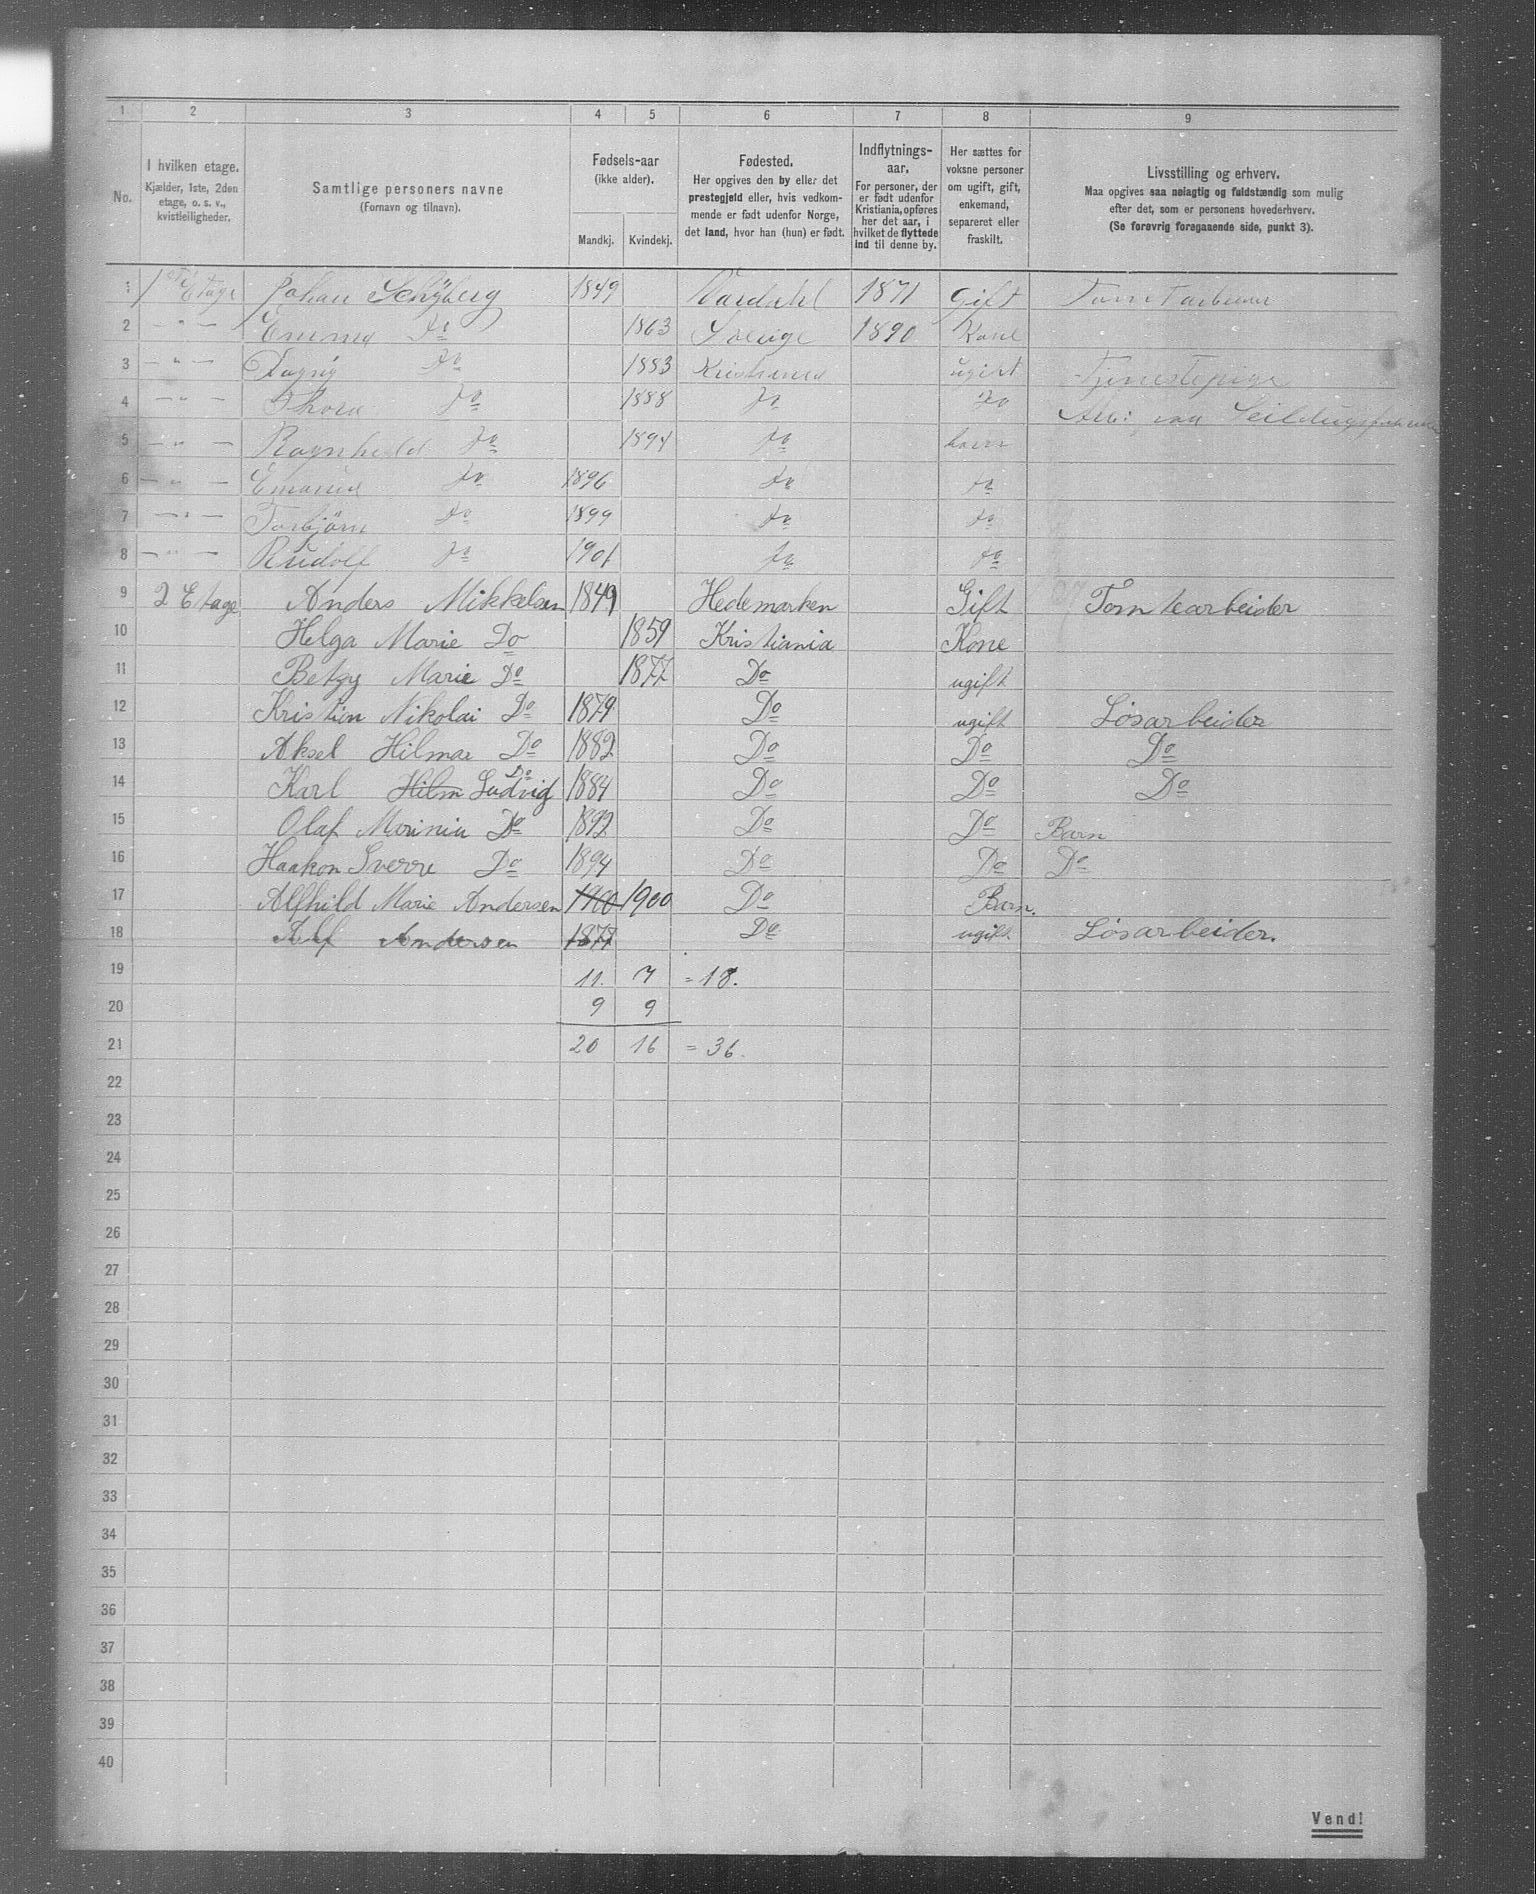 1 2 3 4 5 6 7 8 9
No. I hvilken etage. Kjælder, 1ste, 2den etage, o. s. v., kvistleiligheder. Samtlige personers navne (Fornavn og tilnavn). Fødsels-aar (ikke alder). Mandkj. Kvindekj. Fødested. Her opgives den by eller det prestegjeld eller, hvis vedkommende er født udenfor Norge, det land, hvor han (hun) er født. Indflytnings-aar. For personer, der er født udenfor Kristiania, opføres her det aar, i hvilket de flyttede ind til denne by. Her sættes for voksne personer om ugift, gift, enkemand, separeret eller fraskilt. Livsstilling og erhverv. Maa opgives saa nøiagtig og fuldstændig som mulig efter det, som er personens hovederhverv. (Se forøvrig foregaaende side, punkt 3).
1 1st Etage Johan Schyberg 1849 Vardahl 1871 Gift
2 — " — Emma Do 1863 Sverige 1890 Kone
3 — " — Dagny Do 1883 Kristiania ugift Tjenestepige
4 — " — Thora Do 1888 Do Do
5 — " — Ragnhild Do 1894 Do barn
6 — " — Emanuel Do 1896 Do Do
7 — " — Torbjørn Do 1899 Do Do
8 — " — Rudolf Do 1901 Do Do
9 2 Etage Anders Mikkelsen 1849 Hedemarken Gift Tomtearbeider
10 Helga Marie Do 1859 Kristiania Kone
11 Betzy Marie Do 1877 Do ugift
12 Kristian Nikolai Do 1879 Do ugift Løsarbeider
13 Aksel Hilmar Do 1882 Do Do Do
14 Karl Hilm Ludvig Do 1884 Do Do Do
15 Olaf Marinia Do 1892 Do Do Barn
16 Haakon Sverre Do 1894 Do Do Do
17 Alfhild Marie Andersen 1900 1900 Do Barn.
18 Alf Andersen 1877 Do ugift Løsarbeider.
19 11. 7 = 18.
20 9 9
21 20 16 = 36.
22
23
24
25
26
27
28
29
30
31
32
33
34
35
36
37
38
39
40
Vend!